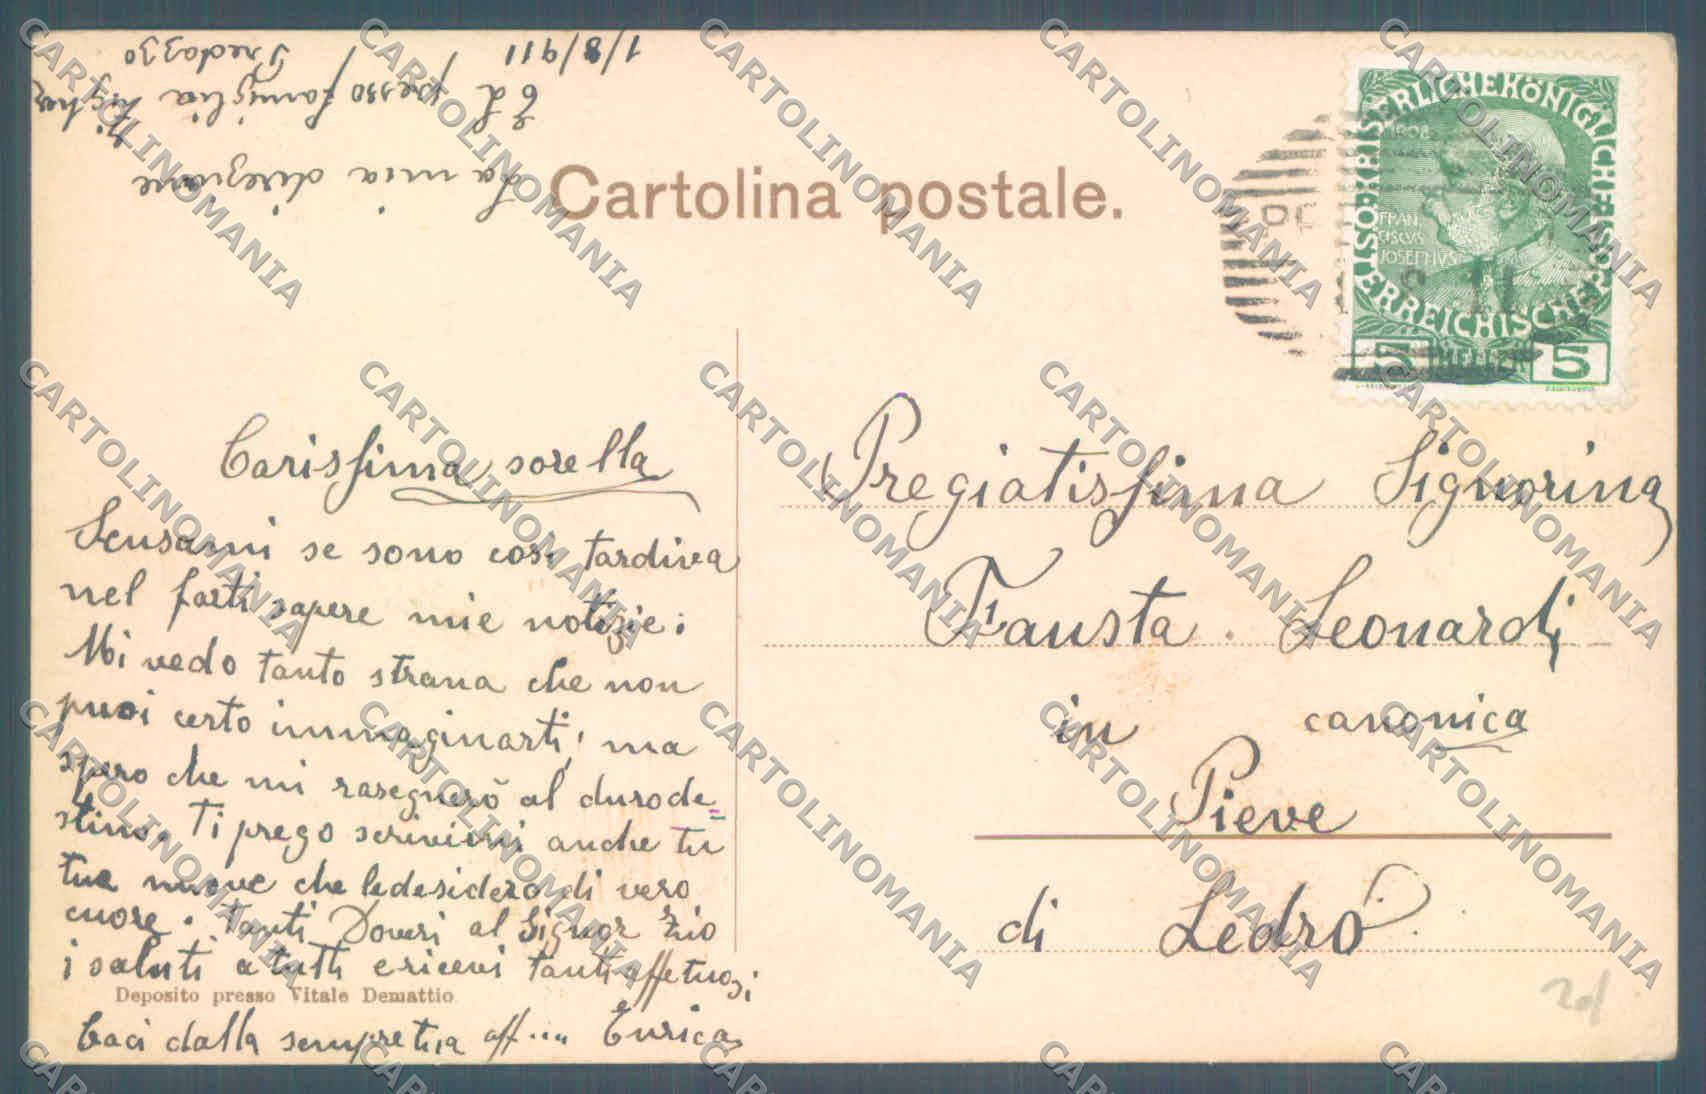 1/8/911
La mia direzione
E L presso famiglia
Predazzo
Cartolina postale.
ÖSTERREICHISCHE POST
KAISERLICHE KÖNIGLICHE
1908
FRAN
CISCVS
JOSEPHVS
5 HELLER 5
Carissima sorella
Scusami se sono così tardiva
nel farti sapere mie notizie:
Mi vedo tanto strana che non
puoi certo immaginarti, ma
spero che mi rasegnerò al duro de=
stino. Ti prego scrivimi anche tu
tue nuove che le desidero di vero
cuore. Tanti Doveri al Signor Zio
i saluti a tutti e ricevi tanti affetuosi
Baci dalla sempre tua aff.... Enrica
Deposito presso Vitale Demattio
Pregiatissima Signorina
Fausta Leonardi
in canonica
Pieve
di Ledro
CARTOLINOMANIA